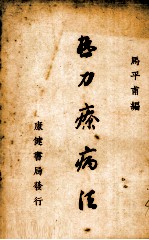 馬平甫編
力療病法
康健書局發行